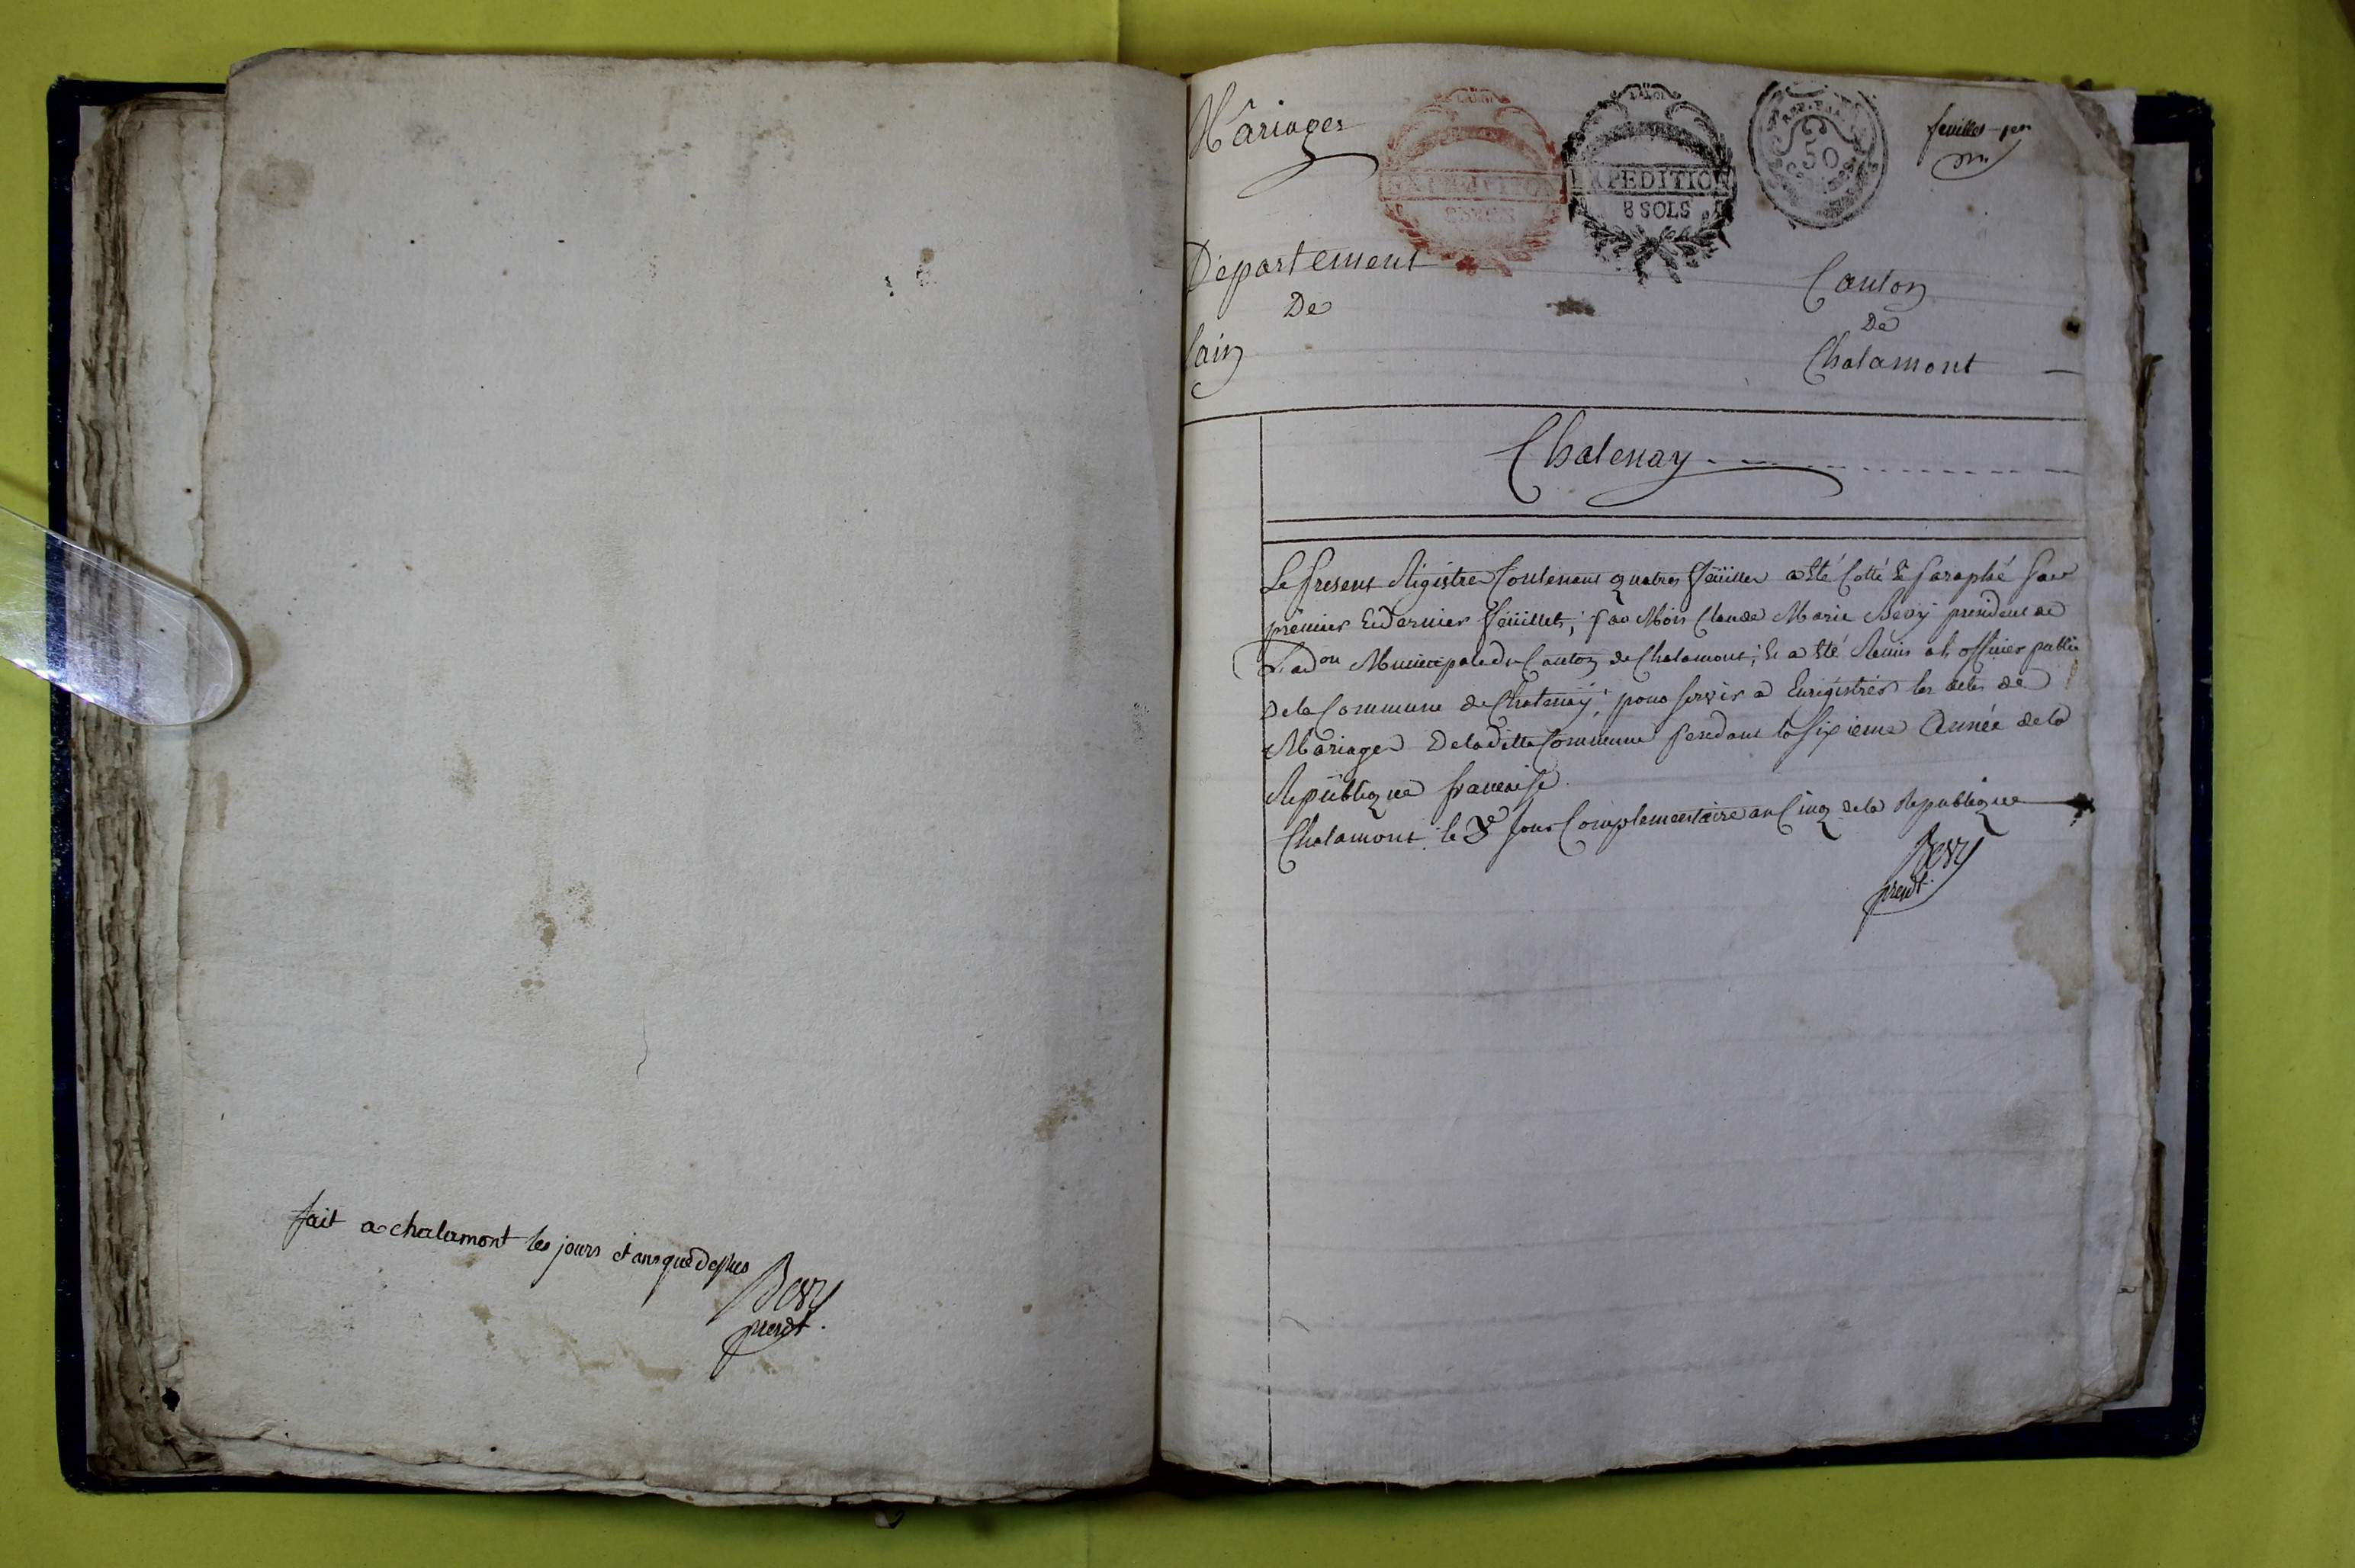 fait a chalamont les jours et ans que dessus
Bevy
presdt.
Mâriages
LA LOI
EXPEDITION
8 SOLS
LA LOI
EXPEDITION
8 SOLS
REP. FRA
50
CENTIMES
feuillet
Departement
De
Lain
Canton
De
Chalamont
Chatenay
Le present Régistre Contenant quatres feüilles a êté Cotté et paraphé par
prémier et dernier feüillets; par Moi Claude Marie Bevy president de
L'adon Municipale du Canton de Chalamont; et a êté Remis a l'officier public
de la Commune de Chatenay; pour servir a Enrégistrér les actes de
Mariages De la ditte Commune pendant la Sixieme Année de la
Republique francaise.
Chalamont le Jour Complementaire an Cinq de la Republique
Bevy
presdt.